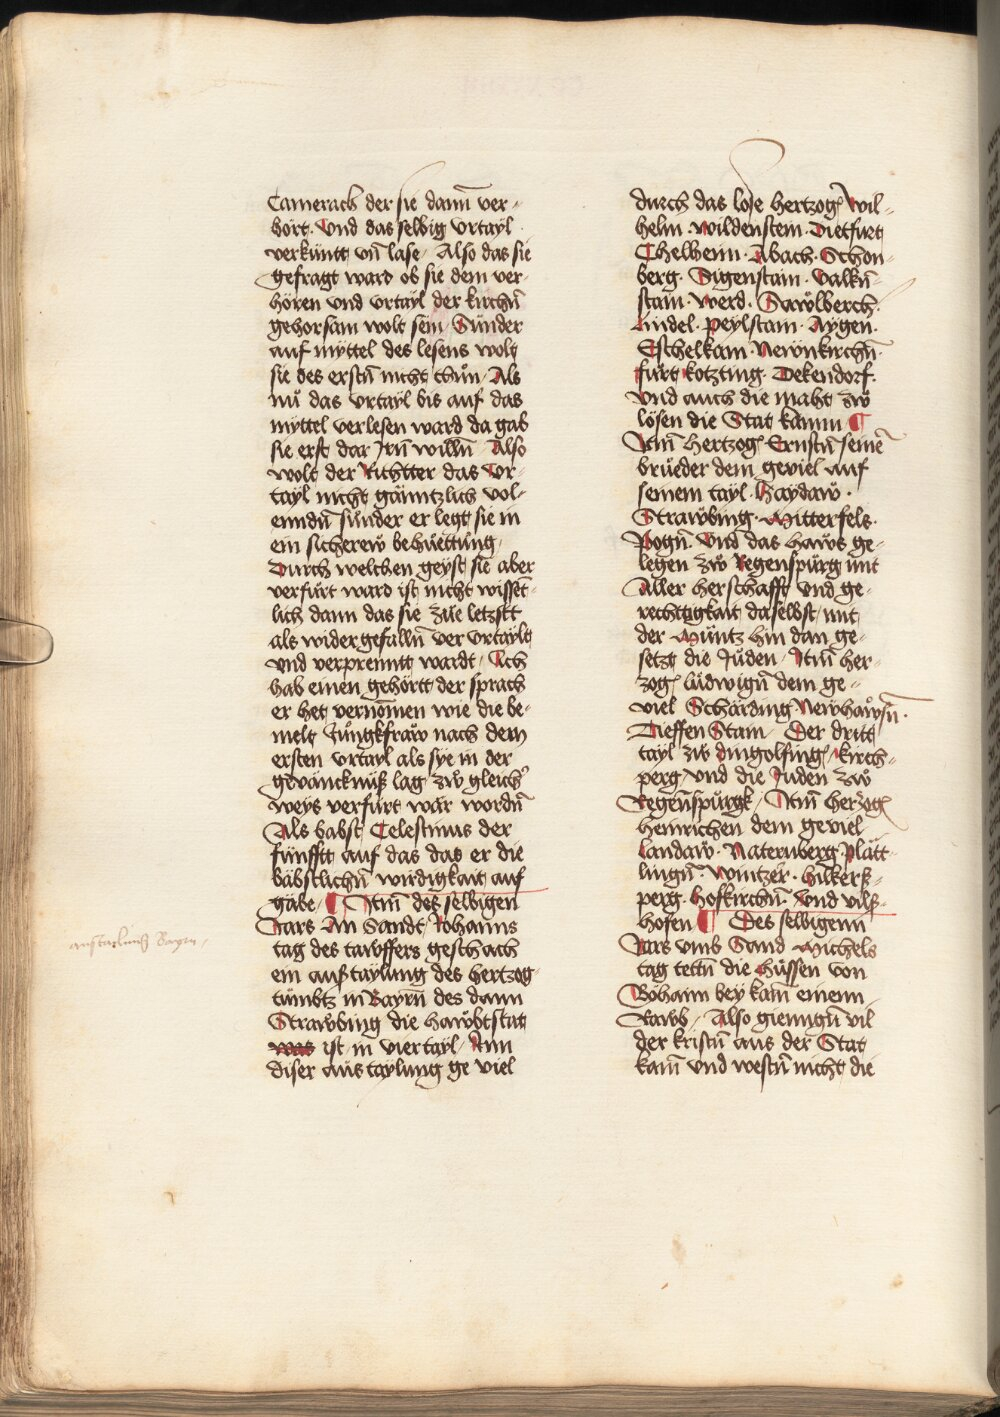 Camerach der sie dann̄ ver-
hört · Vnd das selbig vrtayl
verküntt vn̄ lase / Also das sie
gefragt ward ob sie dem ver-
hören vnd vrtayl der kirchn̄
gehorsam wolt sein / Sünder
auf myttel des lesens wolt
sie des erstn̄ nicht thůn / Als
nů das vrtayl bis auf das
myttel verlesen ward da gab
sie erst dar Jrn̄ willn̄ / Also
wolt der Richtter das Vr-
tayl nicht gänntzlich vol-
enndn̄ sünder er legt sie in
ein sicherew behüettüng /
Durch welchen geyst sie aber
verfürt ward ist nicht wissent-
lich dann das sie züe letzstt
als widergefalln̄ ver vrtaylt
vnd verprenntt wardt / Ich
hab einen gehörtt der sprach
er het vernomen wie die be-
melt Jungkfraw nach dem
ersten vrtayl als sye in der
gevancknüß lag zw gleich̄
weys verfürt wär wordn̄
Als babst Celestinus der
fünfftt auf das das er die
bäbstlichn̄ wirdigkait auf
gäbe / ¶ Jtm̄ des selbigen
Jars An Sandt Johanns
tag des tawffers geschach
ein außtaylung des hertzog-
tümbtz in Bayrn̄ des dann
Strawbing die hawbtstat
was ist in viertayl / Inn
diser aus taylung ge viel
austaylung Bayrn /
durch das lose hertzog Wil-
helm · Wildenstein · Dietfurt
Chelheim · Abach · Schon-
berg · Sigenstain · Valkn̄-
stain · Werd · Sawlberch ·
Lindel · Peylstain · Aygen ·
Eschelkam · Newnkirchn̄ ·
fürt kotzting · Dekendorf ·
Vnd auch die maht zw
lösen die Stat kamm ¶
Jtm̄ hertzog Ernstn̄ seinē
brüeder dem geviel auf
seinem tayl · Haydaw ·
Strawbing · Mitterfels ·
Pogn̄ · Vnd das haws ge-
legen zw Regenspürg mit
Aller herschafft vnd ge-
rechtigkait daselbst / mit
der Müntz hin dan ge-
setzt die Jüden / Jtm̄ her-
zog lüdwign̄ dem ge-
viel Schärding Newhawsn̄ ·
Dieffen Stain / Der dritt
tayl zw dingolfing / kirch-
perg vnd die Juden zw
Regenspürgk / Jtm̄ herzog
heinrichen dem geviel
Landaw · Naternberg · Plätt-
lingn̄ · Wintzer · hilkerß-
perg · hofkirchn̄ · Vnd vilß-
hofen / ¶ Des selbigenn
Jars vmb Sand Michels
tag tettn̄ die hüssen von
Böhaim bey kam̄ einenn
Rawb / Also giennign̄ vil
der kristn̄ aus der Stat
kam̄ vnd westn̄ nicht die